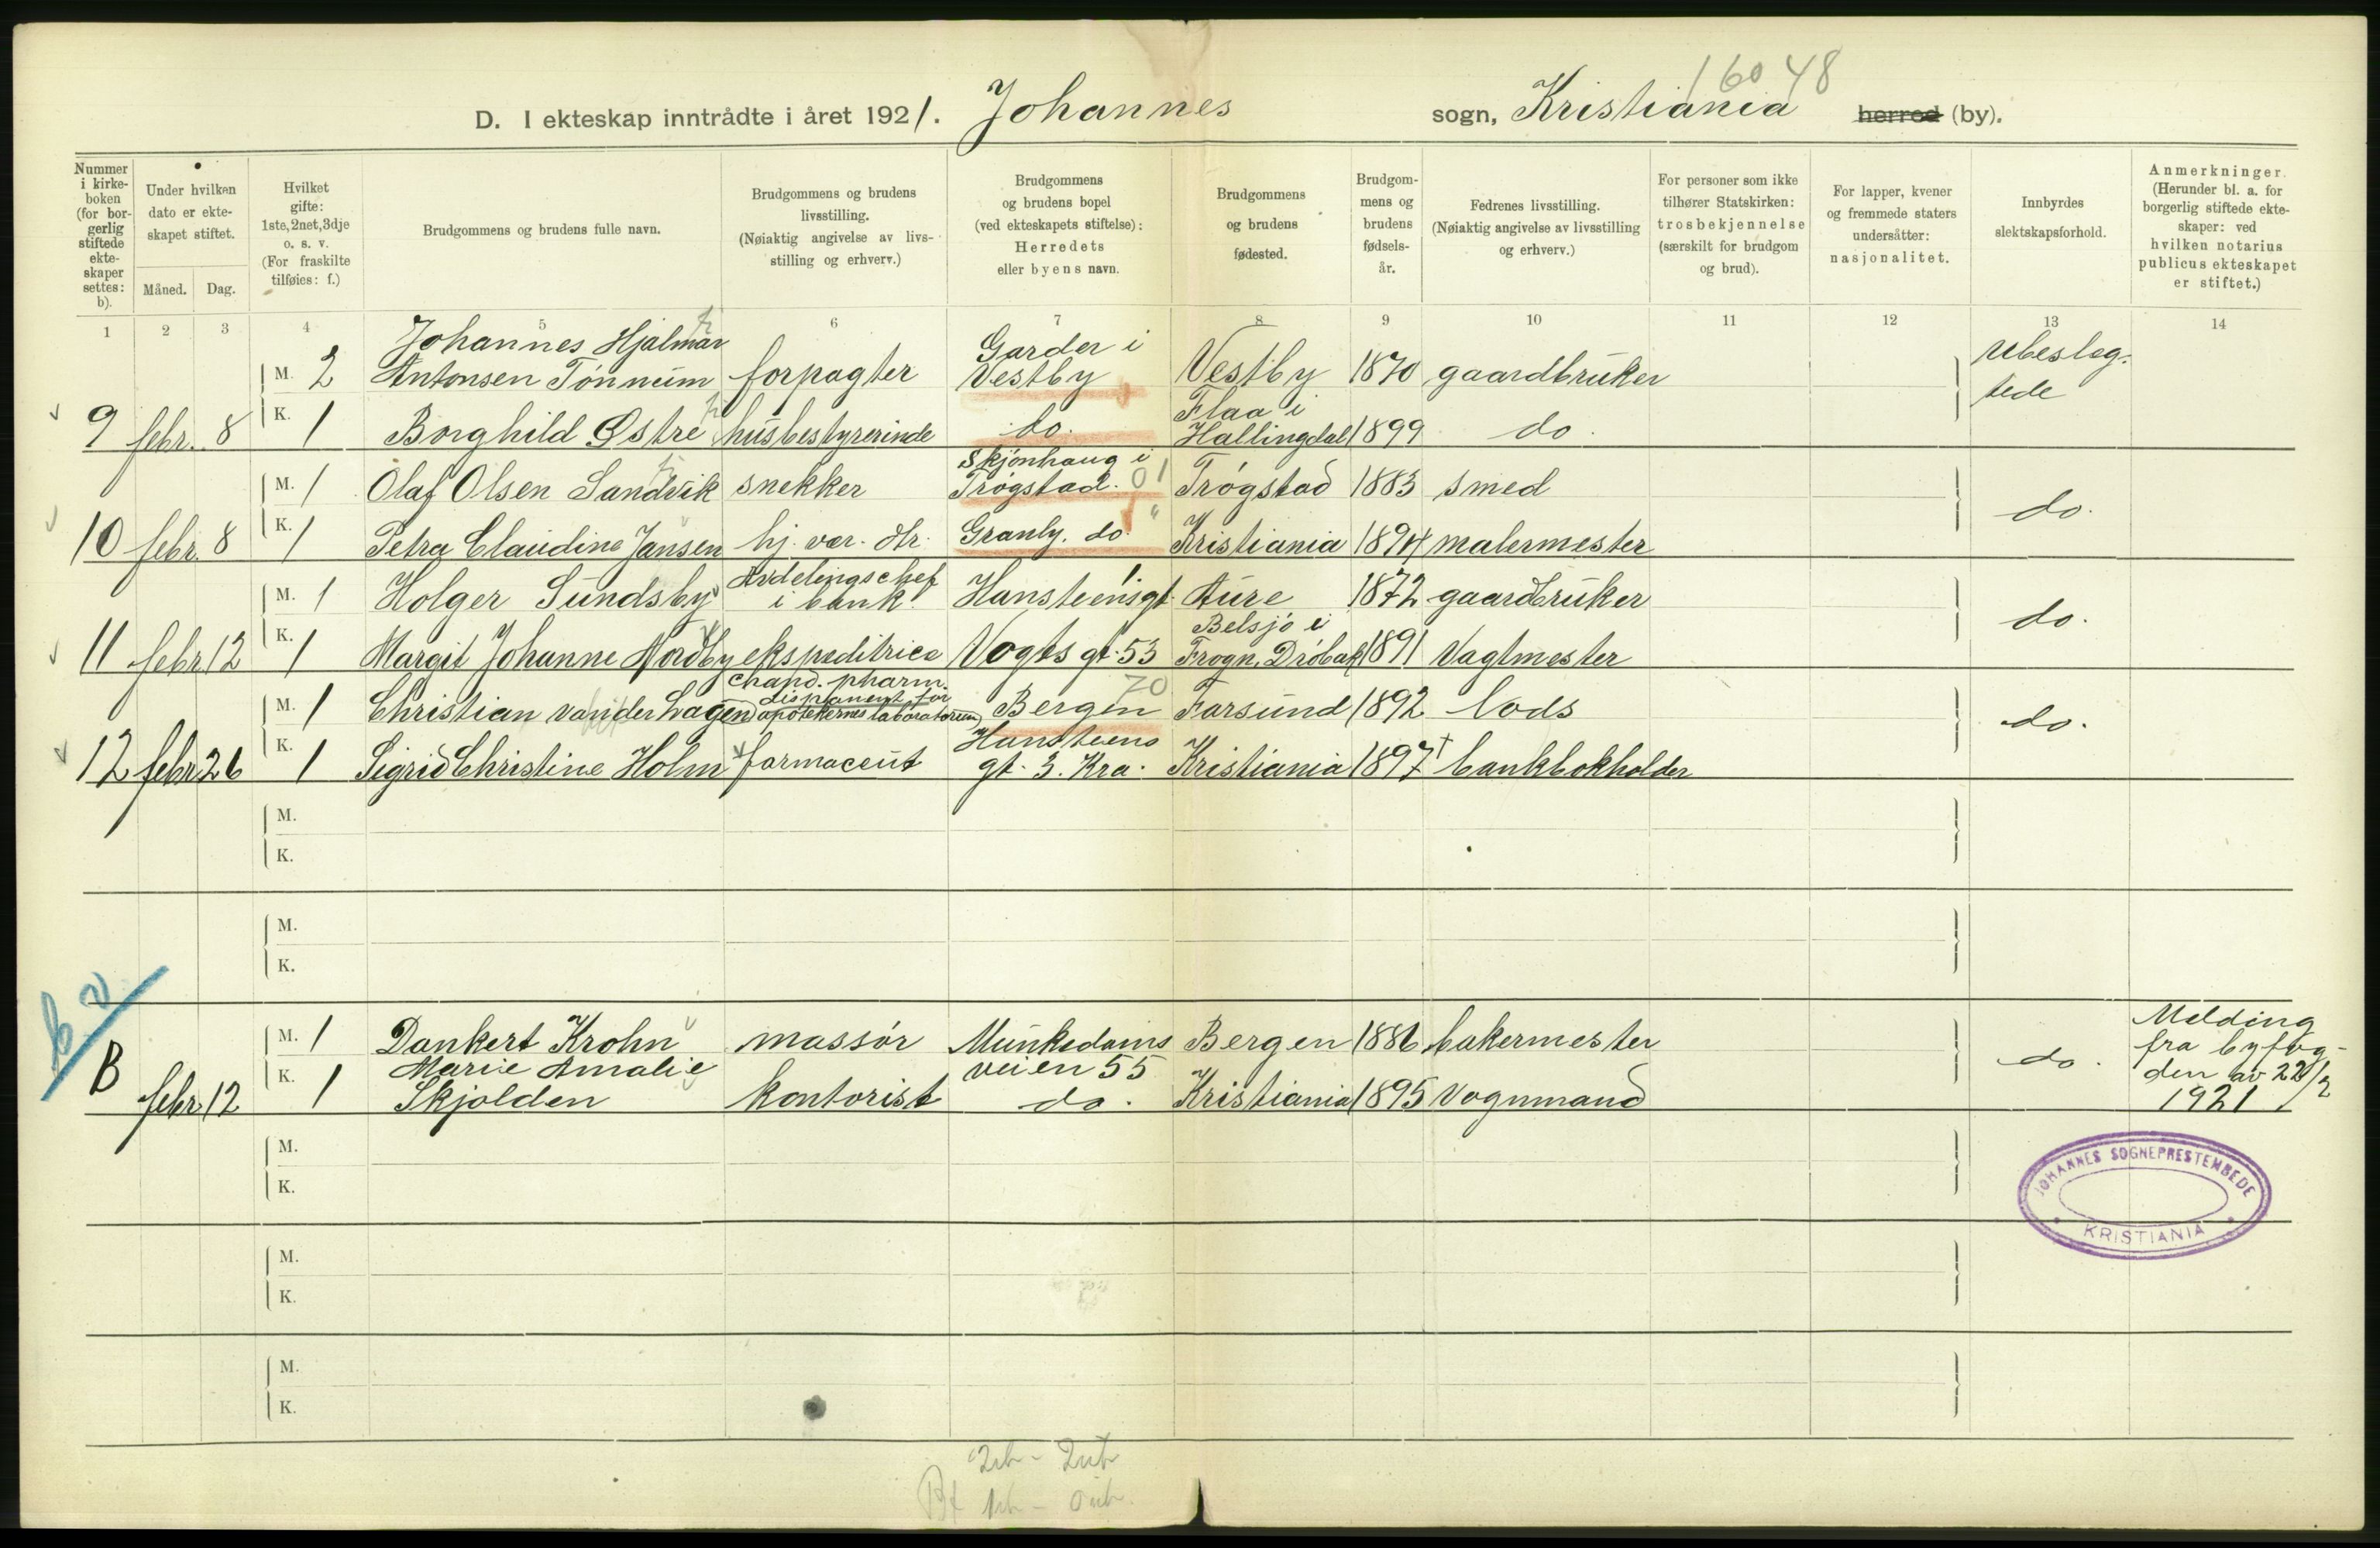 16048
D. I ekteskap inntrådte i året 1921. Johannes sogn, Kristiania herred (by).
Nummer i kirkeboken (for borgerlig stiftede ekteskaper settes: b).
Under hvilken dato er ekteskapet stiftet.
Måned. Dag.
Hvilket gifte: 1ste, 2net, 3dje o. s. v. (For fraskilte tilføies: f.)
Brudgommens og brudens fulle navn.
Brudgommens og brudens livsstilling. (Nøiaktig angivelse av livsstilling og erhverv.)
Brudgommens og brudens bopel (ved ekteskapets stiftelse): Herredets eller byens navn.
Brudgommens og brudens fødested.
Brudgommens og brudens fødselsår.
Fedrenes livsstilling. (Nøiaktig angivelse av livsstilling og erhverv.)
For personer som ikke tilhører Statskirken: trosbekjennelse (særskilt for brudgom og brud).
For lapper, kvener og fremmede staters undersåtter: nasjonalitet.
Innbyrdes slektskapsforhold.
Anmerkninger. (Herunder bl. a. for borgerlig stiftede ekteskaper: ved hvilken notarius publicus ekteskapet er stiftet.)
1 2 3 4 5 6 7 8 9 10 11 12 13 14
M. 2 Johannes Hjalmar Antonsen Tönnüm forpagter Garder i Vestby Vestby 1870 gaardbrüker Ubeslægtede
9 febr. 8 K. 1 Borghild Østre husbestyrerinde do. Flaa i Hallingdal 1899 do.
M. 1 Olaf Olsen Sandvik snekker Skjönhaug i Trögstad. 01 Trögstad 1883 smed do.
10 febr. 8 K. 1 Petra Claudine Jansen hj. vær. Str. Granly, do. " Kristiania 1894 malermester
M. 1 Holger Sundsby Avdelingschef i bank. Hansteensgt. 1 Aure 1872 gaardbrüker do.
11 febr 12 K. 1 Margit Johanne Nordby ekspeditrice Vogts gt. 53 Belsjö i Frogn, Dröbak 1891 Vagtmester
M. 1 Christian van der Hagen chand. pharm. (disponent for apotekernes laboratorium) Bergen 70 Farsund 1892 lods do.
12 febr 26 K. 1 Sigrid Christine Holm farmaceut Hansteens gt. 3. Kra. Kristiania 1897 † bankbokholder
M.
K.
M.
K.
M. 1 Dankert Krohn massör Munkedamsveien 55 Bergen 1886 bakermester do. Melding fra byfogden av 22/2 1921
B febr 12 K. 1 Marie Amalie Skjolden kontorist do. Kristiania 1895 Vognmand
M.
K.
JOHANNES SOGNEPRESTEMBEDE
KRISTIANIA
M.
K.
M.
K.